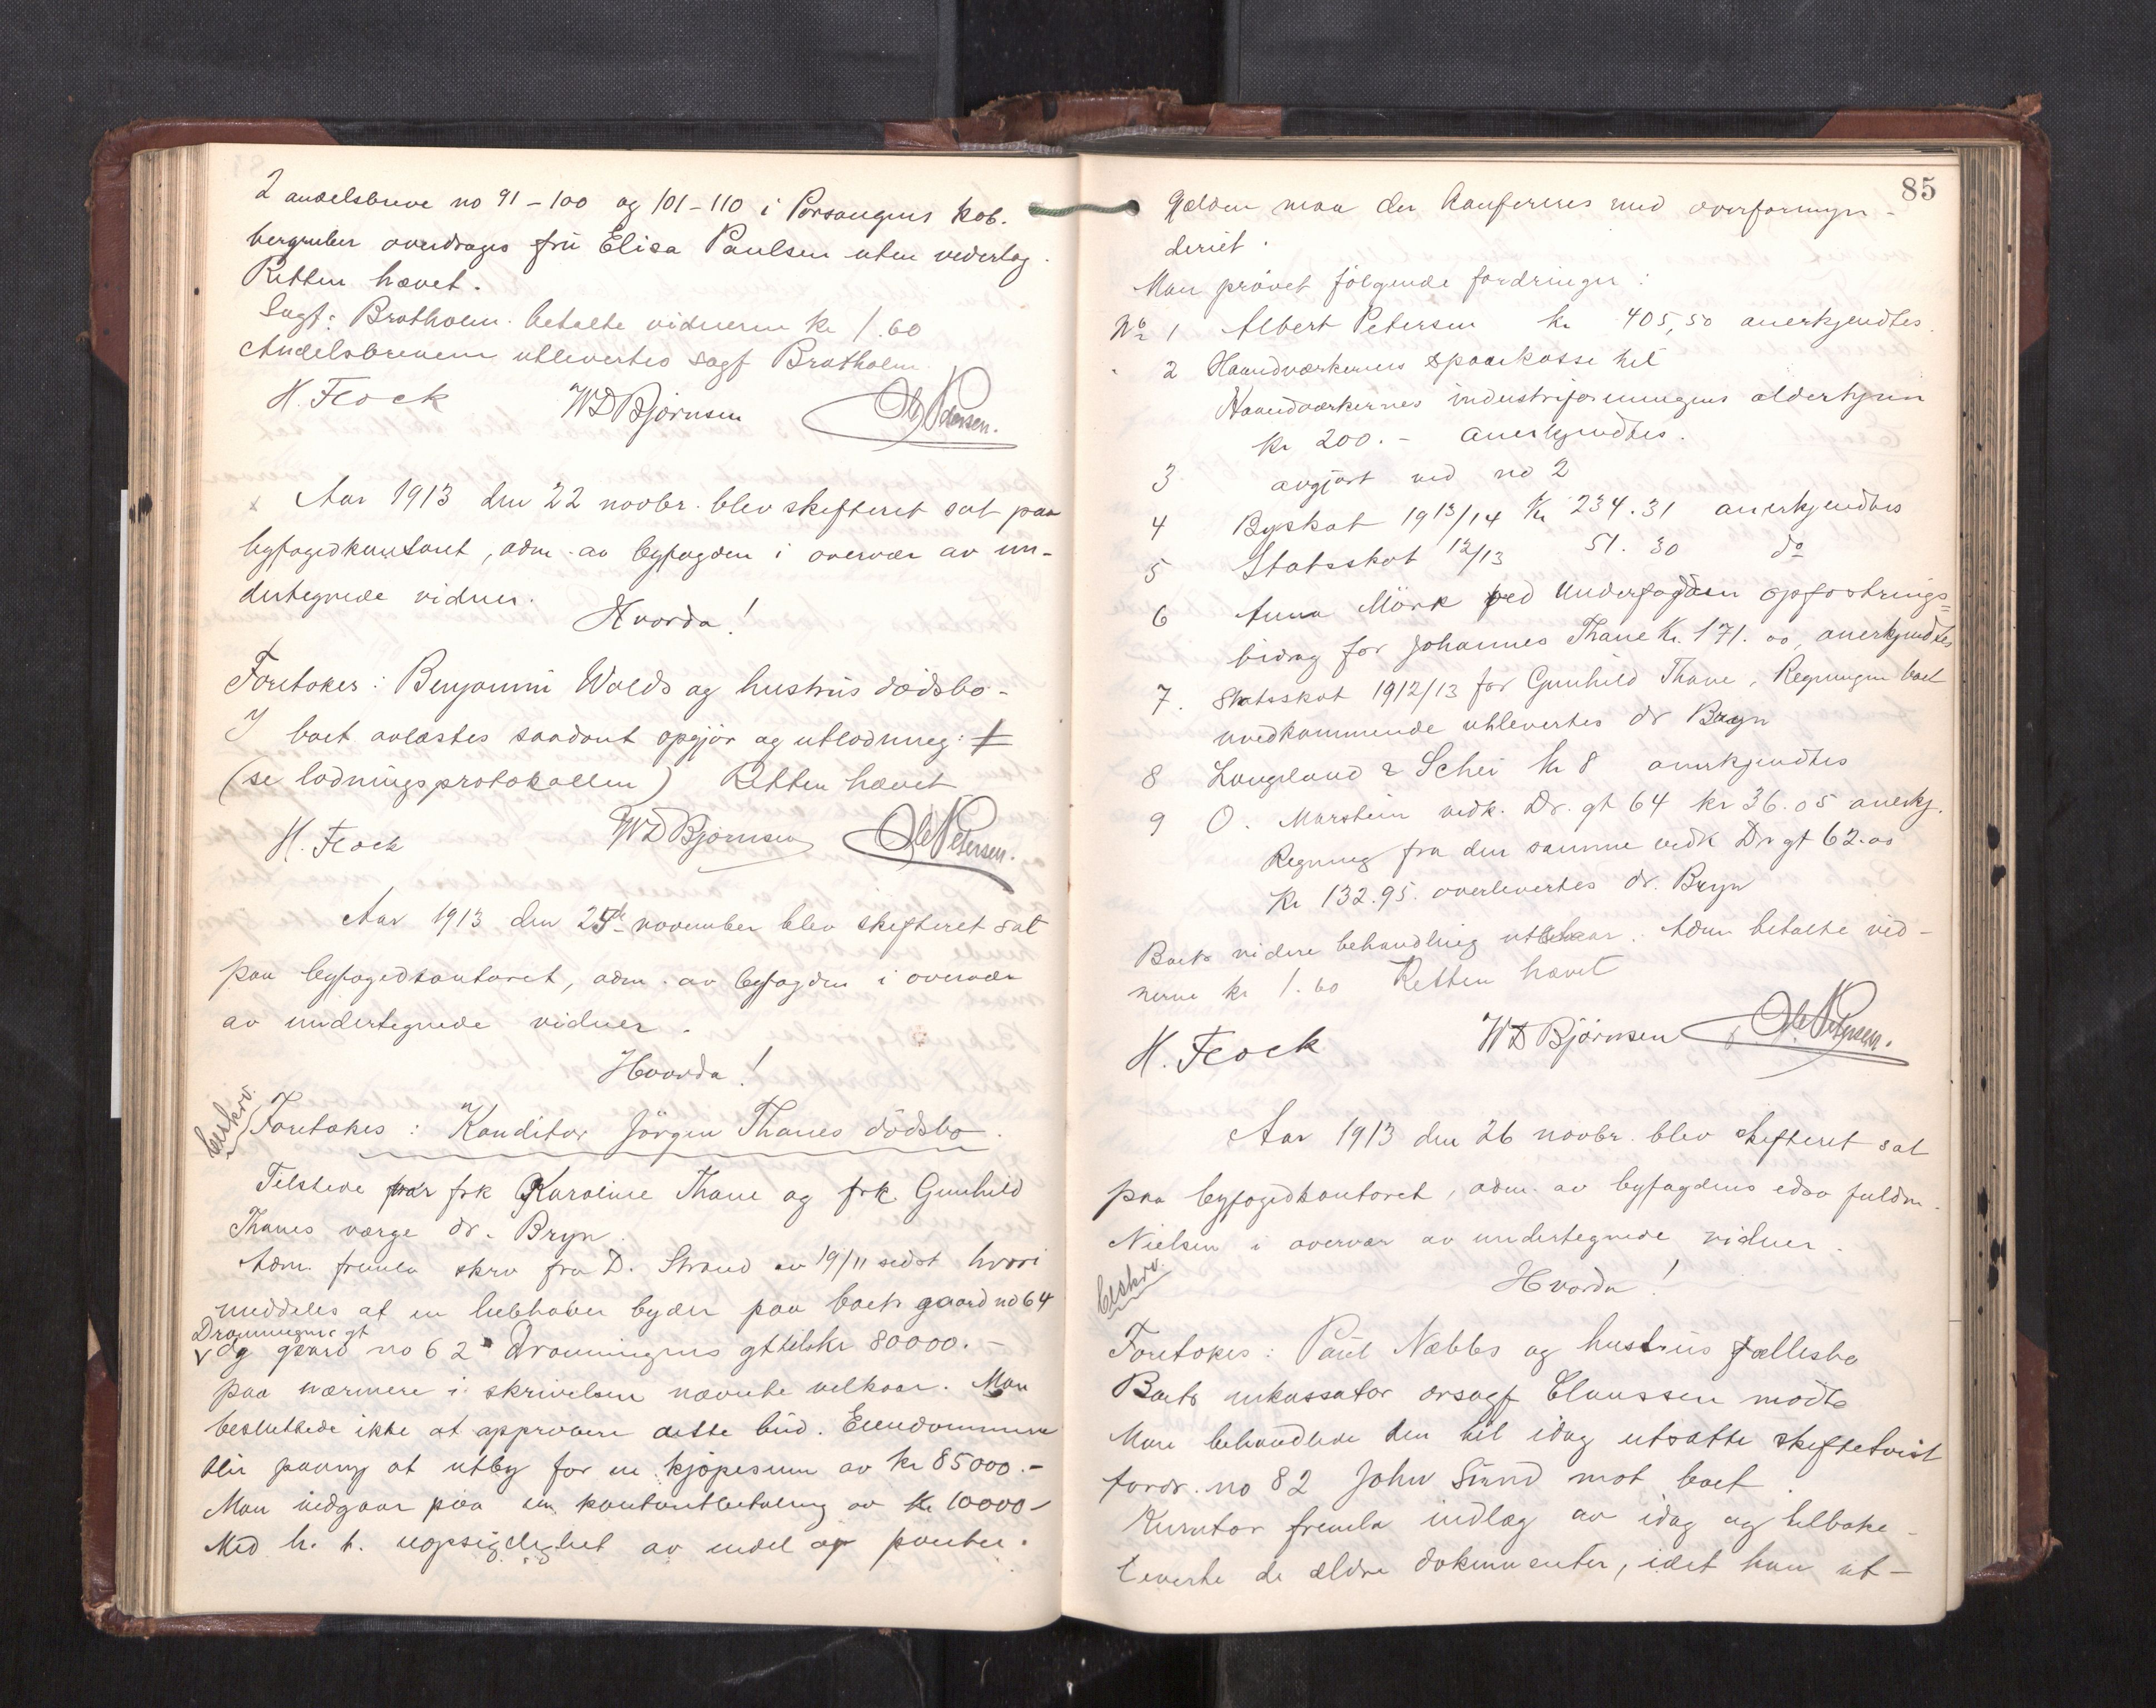 2 andelsbreve no 91-100 og 101-110 i Porsangens kob-
bergruber overdrages frú Elisa Paulsen uten vederlag.
Retten hævet.
Sagf: Bratholm betalte vidnerne kr 1.60
Andelsbrevene utlevertes sagf Bratholm.
H. Flock WDBjørnsen Ole Petersen.
Aar 1913 den 22 novbr. blev skifteret sat paa
byfogedkontoret, adm. av byfogden i overvær av un-
dertegnede vidner.
Hvorda!
Foretokes: Benjamin Wolds og hustrus dødsbo-
I boet avlæstes saadant opgjør og utlodning:
(se lodningsprotokollen) Retten hævet
H. Flock WDBjørnsen Ole Petersen.
Aar 1913 den 25de november blev skifteret sat
paa byfogedkontoret, adm. av byfogden i overvær
av undertegnede vidner.
Hvorda!
beskrv.
Foretokes: Konditor Jörgen Thanes dödsbo.
Tilstede var frk Karoline Thane og frk. Gunhild
Thanes værge dr. Bryn.
Adm. fremla skrv fra D. Strand av 19/11 sidst hvori
meddeles at en liebhaber byder paa boets gaard no 64
Dronningens gt
og gaard no 62 Dronningens gt tils kr 80000.-
paa nærmere i skrivelsen nævnte vilkaar. Man
besluttede ikke at approbere dette búd. Eiendommene
blir paany at utby for en kjøpesum av kr 85000.-
Man vedgaar paa en kontantbetaling av kr 10000-
Med h. t. uopsigelighet av endel av panter.
85
gælden maa der konfereres med overformyn-
deriet.
Man prøvet følgende fordringer:
No 1 Albert Petersen kr 405,50 anerkjendtes.
2 Haandværkernes sparekasse til
Haandværkernes industriforeningens alderhjem
kr 200.- anerkjendtes.
3 avgjort ved no 2
4 Byskat 1913/14 kr 234.31 anerkjendtes
5 Statsskat 12/13 51.30 do
6 Anna Mörk ved Underfogden opfostrings=
bidrag for Johannes Thane Kr. 171.00, anerkjendtes
7. Statsskat 1912/13 for Gunhild Thane. Regningen boet
uvedkommende utlevertes dr Bryn
8 Langeland & Schei kr 8 anerkjendtes
9 O. Marstein vedk. Dr. gt 64 kr 36.05 anerkj.
Regning fra den samme vedk Dr gt 62.00
kr 132.95. overlevertes dr. Bryn
Boets videre behandling utstaar. Adm betalte vid-
nerne kr 1.60 Retten hævet
H. Flock WDBjörnsen Ole Petersen.
Aar 1913 den 26 novbr. blev skifteret sat
paa byfogedkontoret, adm. av byfogdens edsv fuldm.
Nielsen i overvær av undertegnede vidner.
Hvorda!
beskrv.
Foretokes: Paul Næbbs og hustrus fællesbo
Boets inkassator orsagf Claussen mødte
Man behandlede den til idag utsatte skiftetvist
fordr. no 82 John Sund mot boet.
Kurator fremla indlæg av idag og tilbake-
leverte de ældre dokumenter, idet han ut-